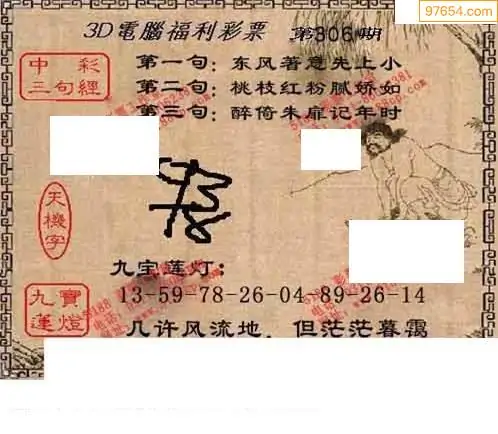 97654.com
3D電腦福利彩票 第306期
中彩
三句經
第一句：东风著意先上小
第二句：桃枝红粉腻娇如
第三句：醉倚朱扉记年时
天機字
九宝莲灯：
九寶
蓮燈
13-59-78-26-04-89-26-14
几许风流地，但茫茫暮霭